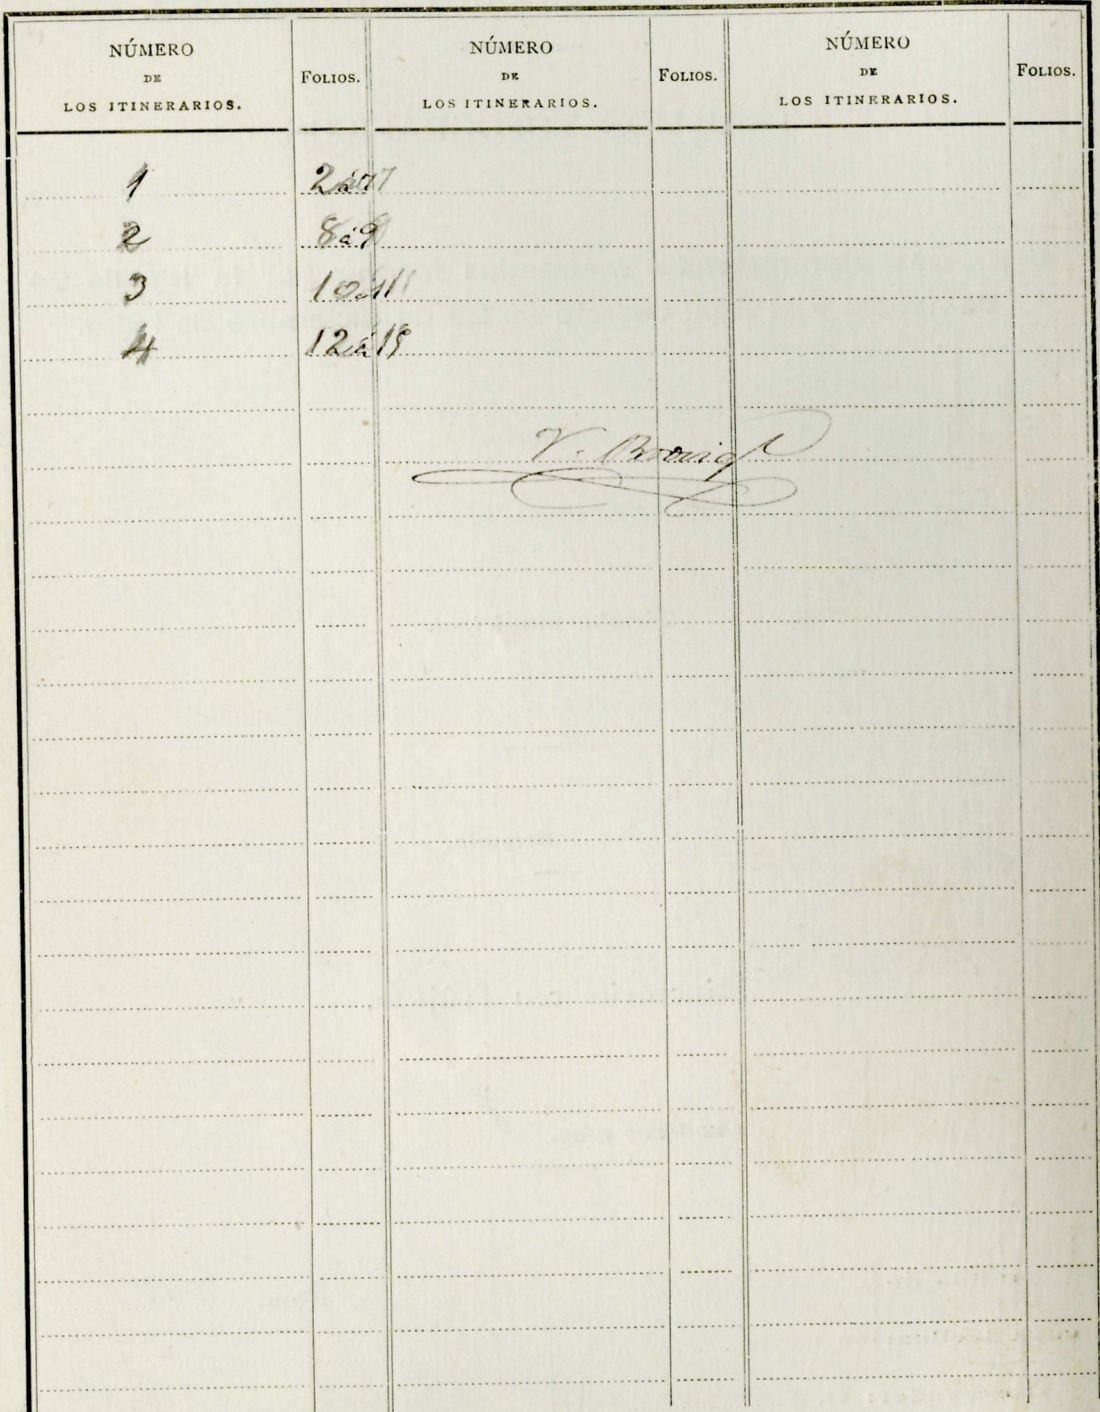 NÚMERO DE LOS ITINERARIOS. FOLIOS. NÚMERO DE LOS ITINERARIOS. FOLIOS. NÚMERO DE LOS ITINERARIOS. FOLIOS.
1 2 á 7
2 8 á 9
3 10 á 11
4 12 á 19
V.